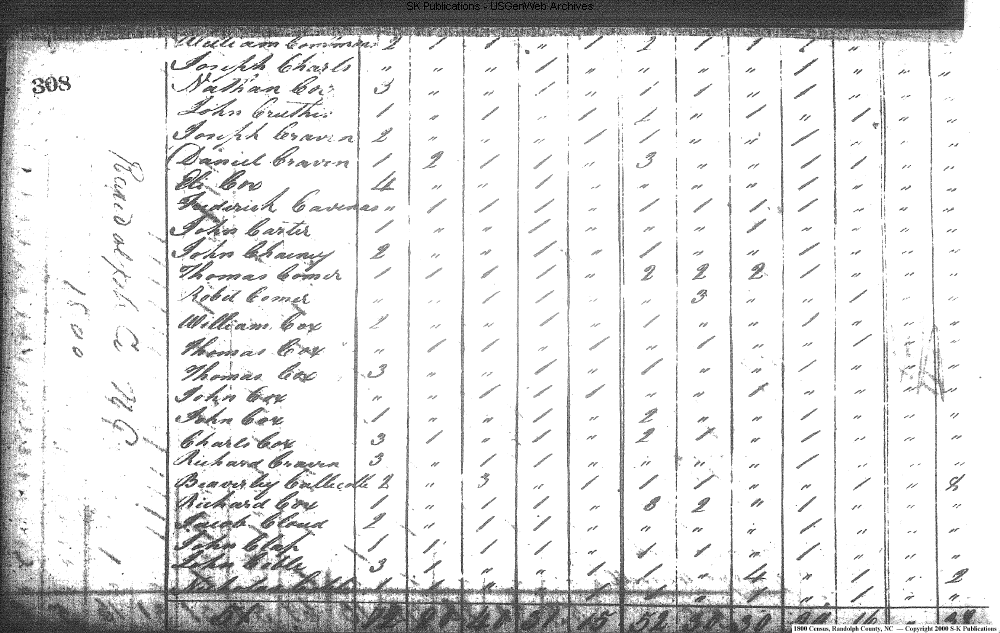 SK Publications - USGenWeb Archives
308
Randolph Co NC
1800
William Commons 2 1 1 " 1 2 1 1 1 "
Joseph Charls " " " 1 " " " " 1 " " "
Nathan Cox 3 " " 1 " 1 1 " 1 " " "
John 1 " 1 " 1 " 1 " 1 " "
Joseph Craven 2 " " 1 1 " " " " "
Daniel Craven 1 2 1 1 " 3 " " 1 " " "
Eli Cox 4 " " 1 " " " " 1 " " "
Frederick Cavenas " 1 1 1 1 1 1 1 1 1 " "
John Carter 1 " " 1 " " " 1 1 " " "
John Chainey 2 " " 1 " 1 " " 1 " " "
Thomas Comer 1 1 1 1 " 2 2 2 1 " " "
Robt Comer " " 1 1 " " 3 " 1 " "
William Cox 2 " " 1 " 1 " " 1 " " "
Thomas Cox " 1 1 " 1 " 1 " " 1 " "
Thomas Cox 3 " " 1 " 1 " " 1 " " "
John Cox " " 1 1 1 " " 1 1 " " "
John Cox 1 " " 1 " 2 " " 1 " " "
Charls Cox 3 1 " 1 " 2 1 " 1 " " "
Richard Craven 3 " 1 1 " " " " 1 " " "
Beaverley Callicotte 2 " 3 " 1 1 1 " " 1 "
Richard Cox 1 " 1 1 " 3 2 " 1 " " "
Jacob Cloud 2 " 1 1 " " " " 1 " " "
John 1 1 1 1 " 1 1 " 1 " " "
John 3 1 " " 1 1 " 4 1 " 2
15 52
1800 Census, Randolph County, NC — Copyright 2000 S-K Publications